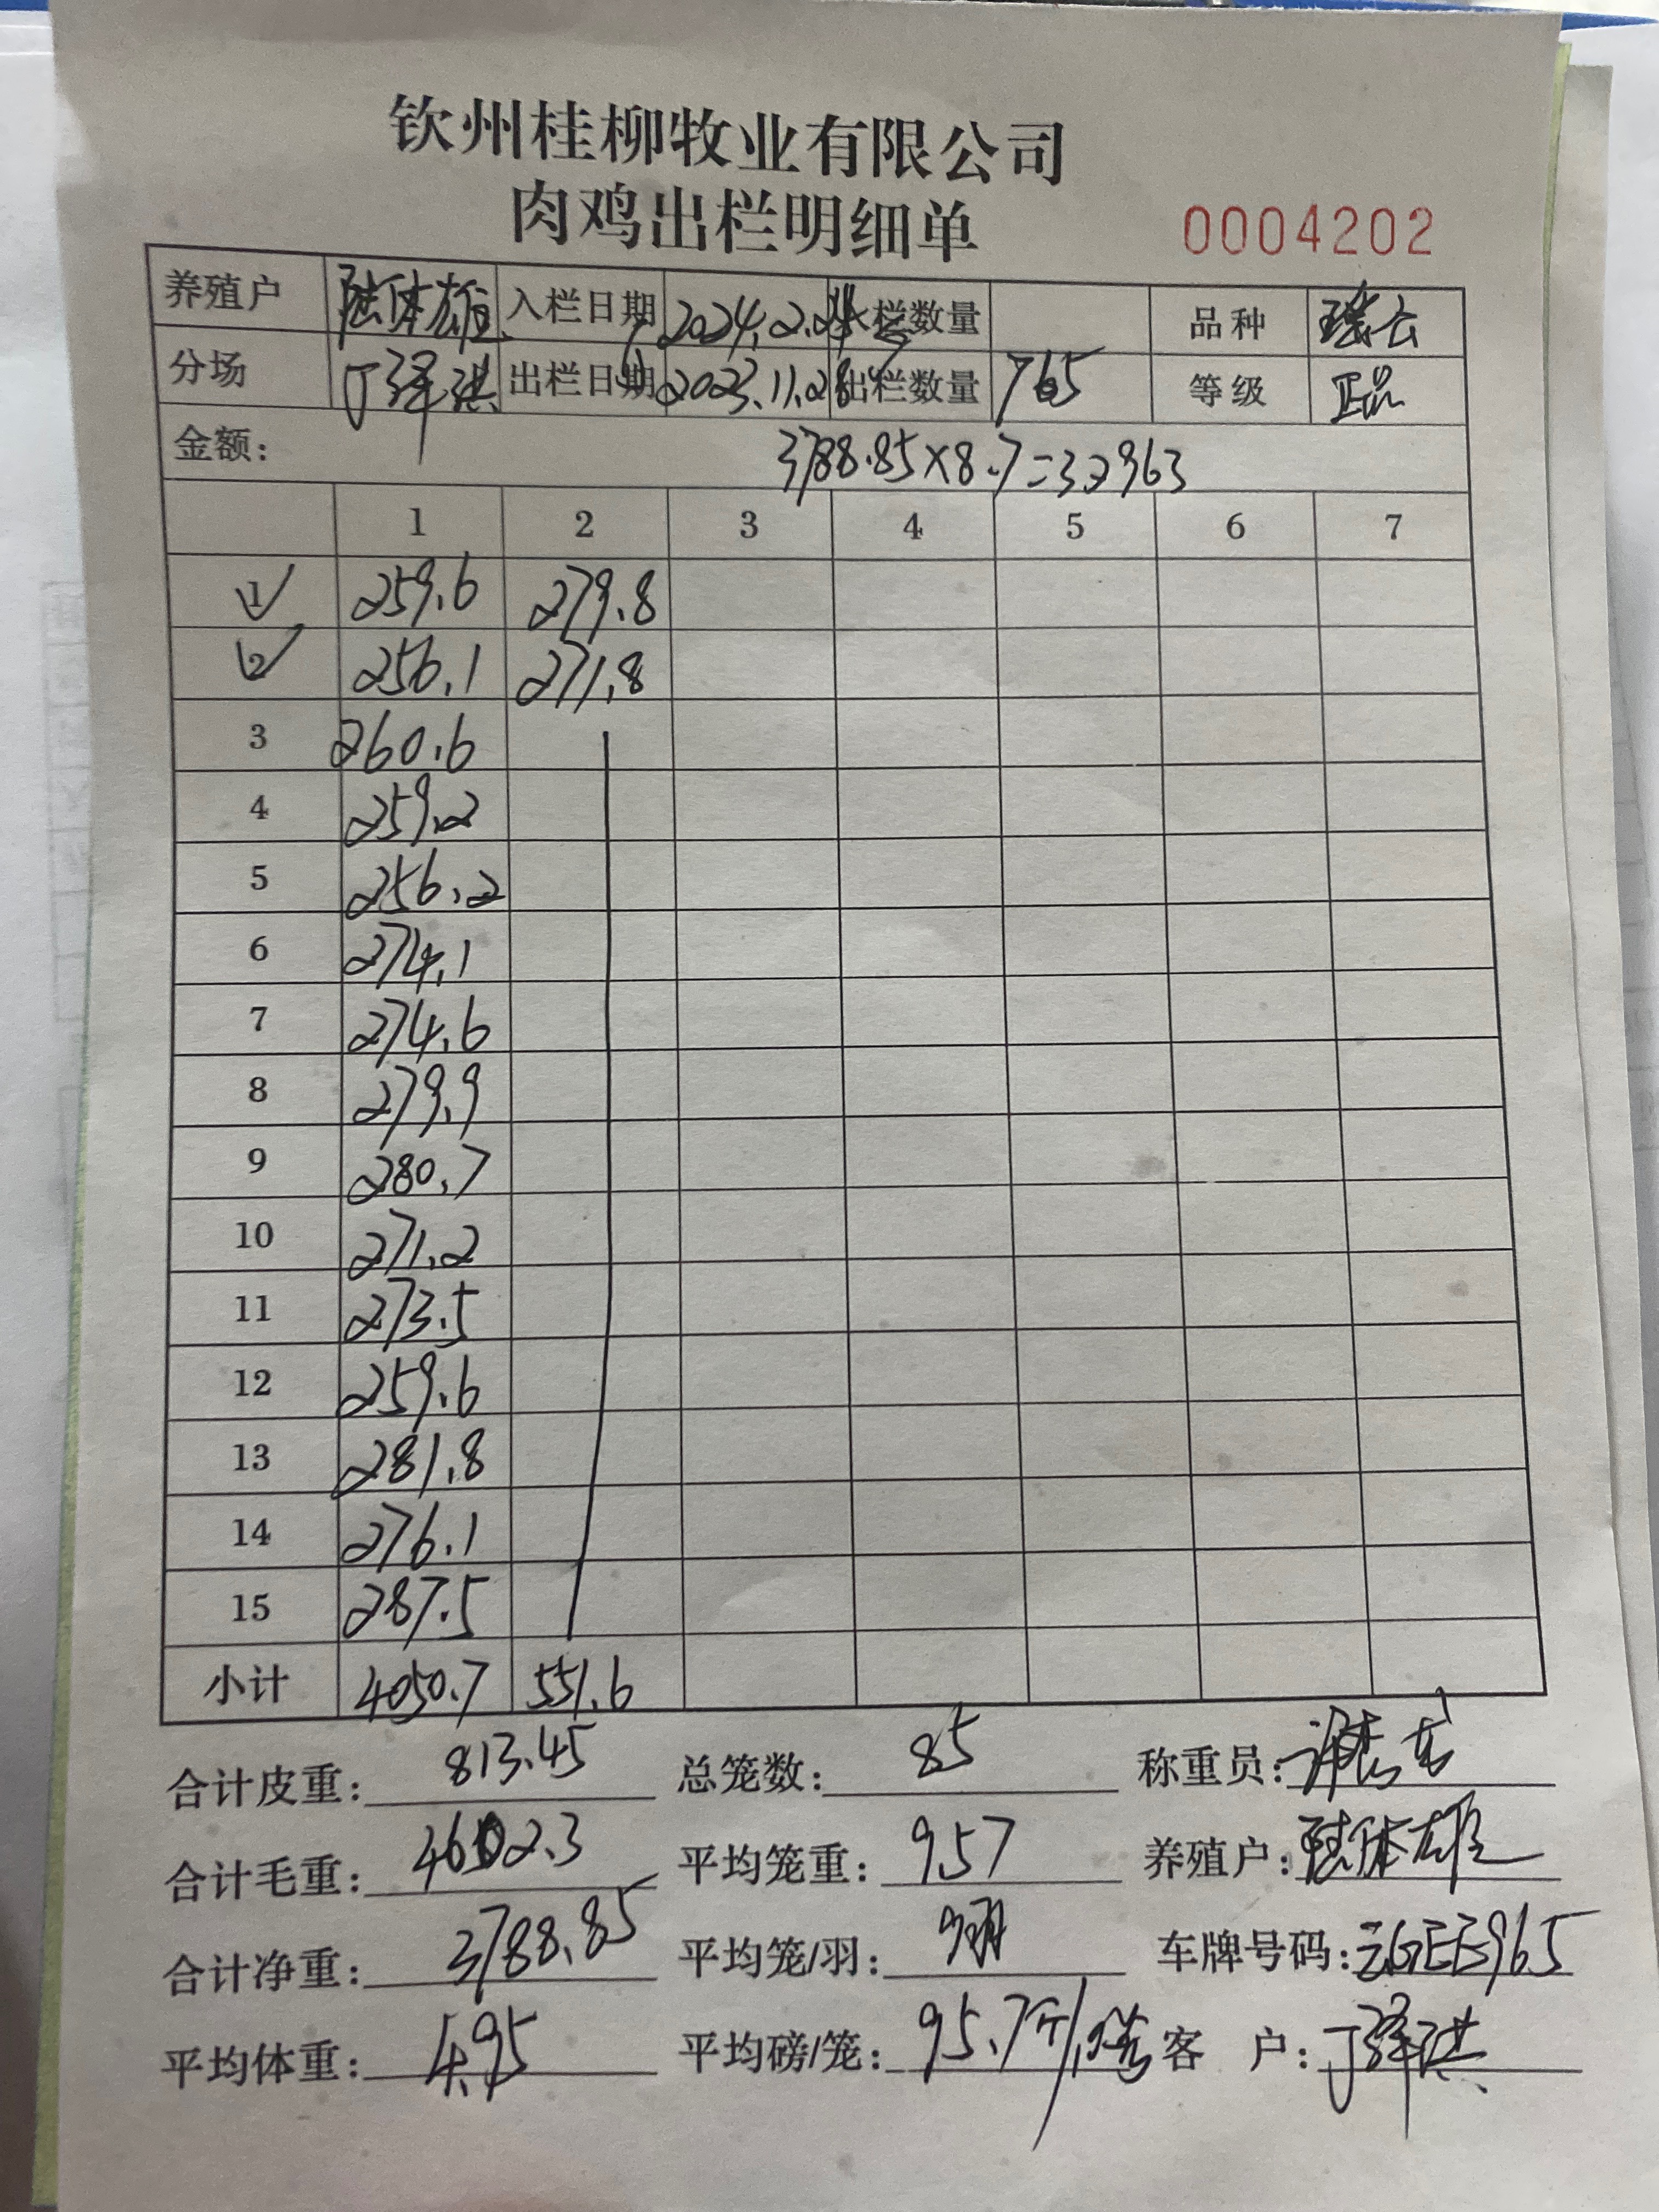 钦州桂柳牧业有限公司
肉鸡出栏明细单 0004202
养殖户 陆体雄 入栏日期 2024.2.24 入栏数量 品种 瑶云
分场 丁泽淇 出栏日期 2023.11.28 出栏数量 765 等级 正品
金额: 3788.85×8.7=32963
1 2 3 4 5 6 7
1 259.6 279.8
2 256.1 271.8
3 260.6
4 259.2
5 256.2
6 274.1
7 274.6
8 279.9
9 280.7
10 271.2
11 273.5
12 259.6
13 281.8
14 276.1
15 287.5
小计 4050.7 551.6
合计皮重: 813.45 总笼数: 85 称重员:
合计毛重: 4602.3 平均笼重: 9.57 养殖户: 陆体雄
合计净重: 3788.85 平均笼/羽: 9羽 车牌号码: 云GEE965
平均体重: 4.95 平均磅/笼: 95.7斤/ 客 户: 丁泽淇